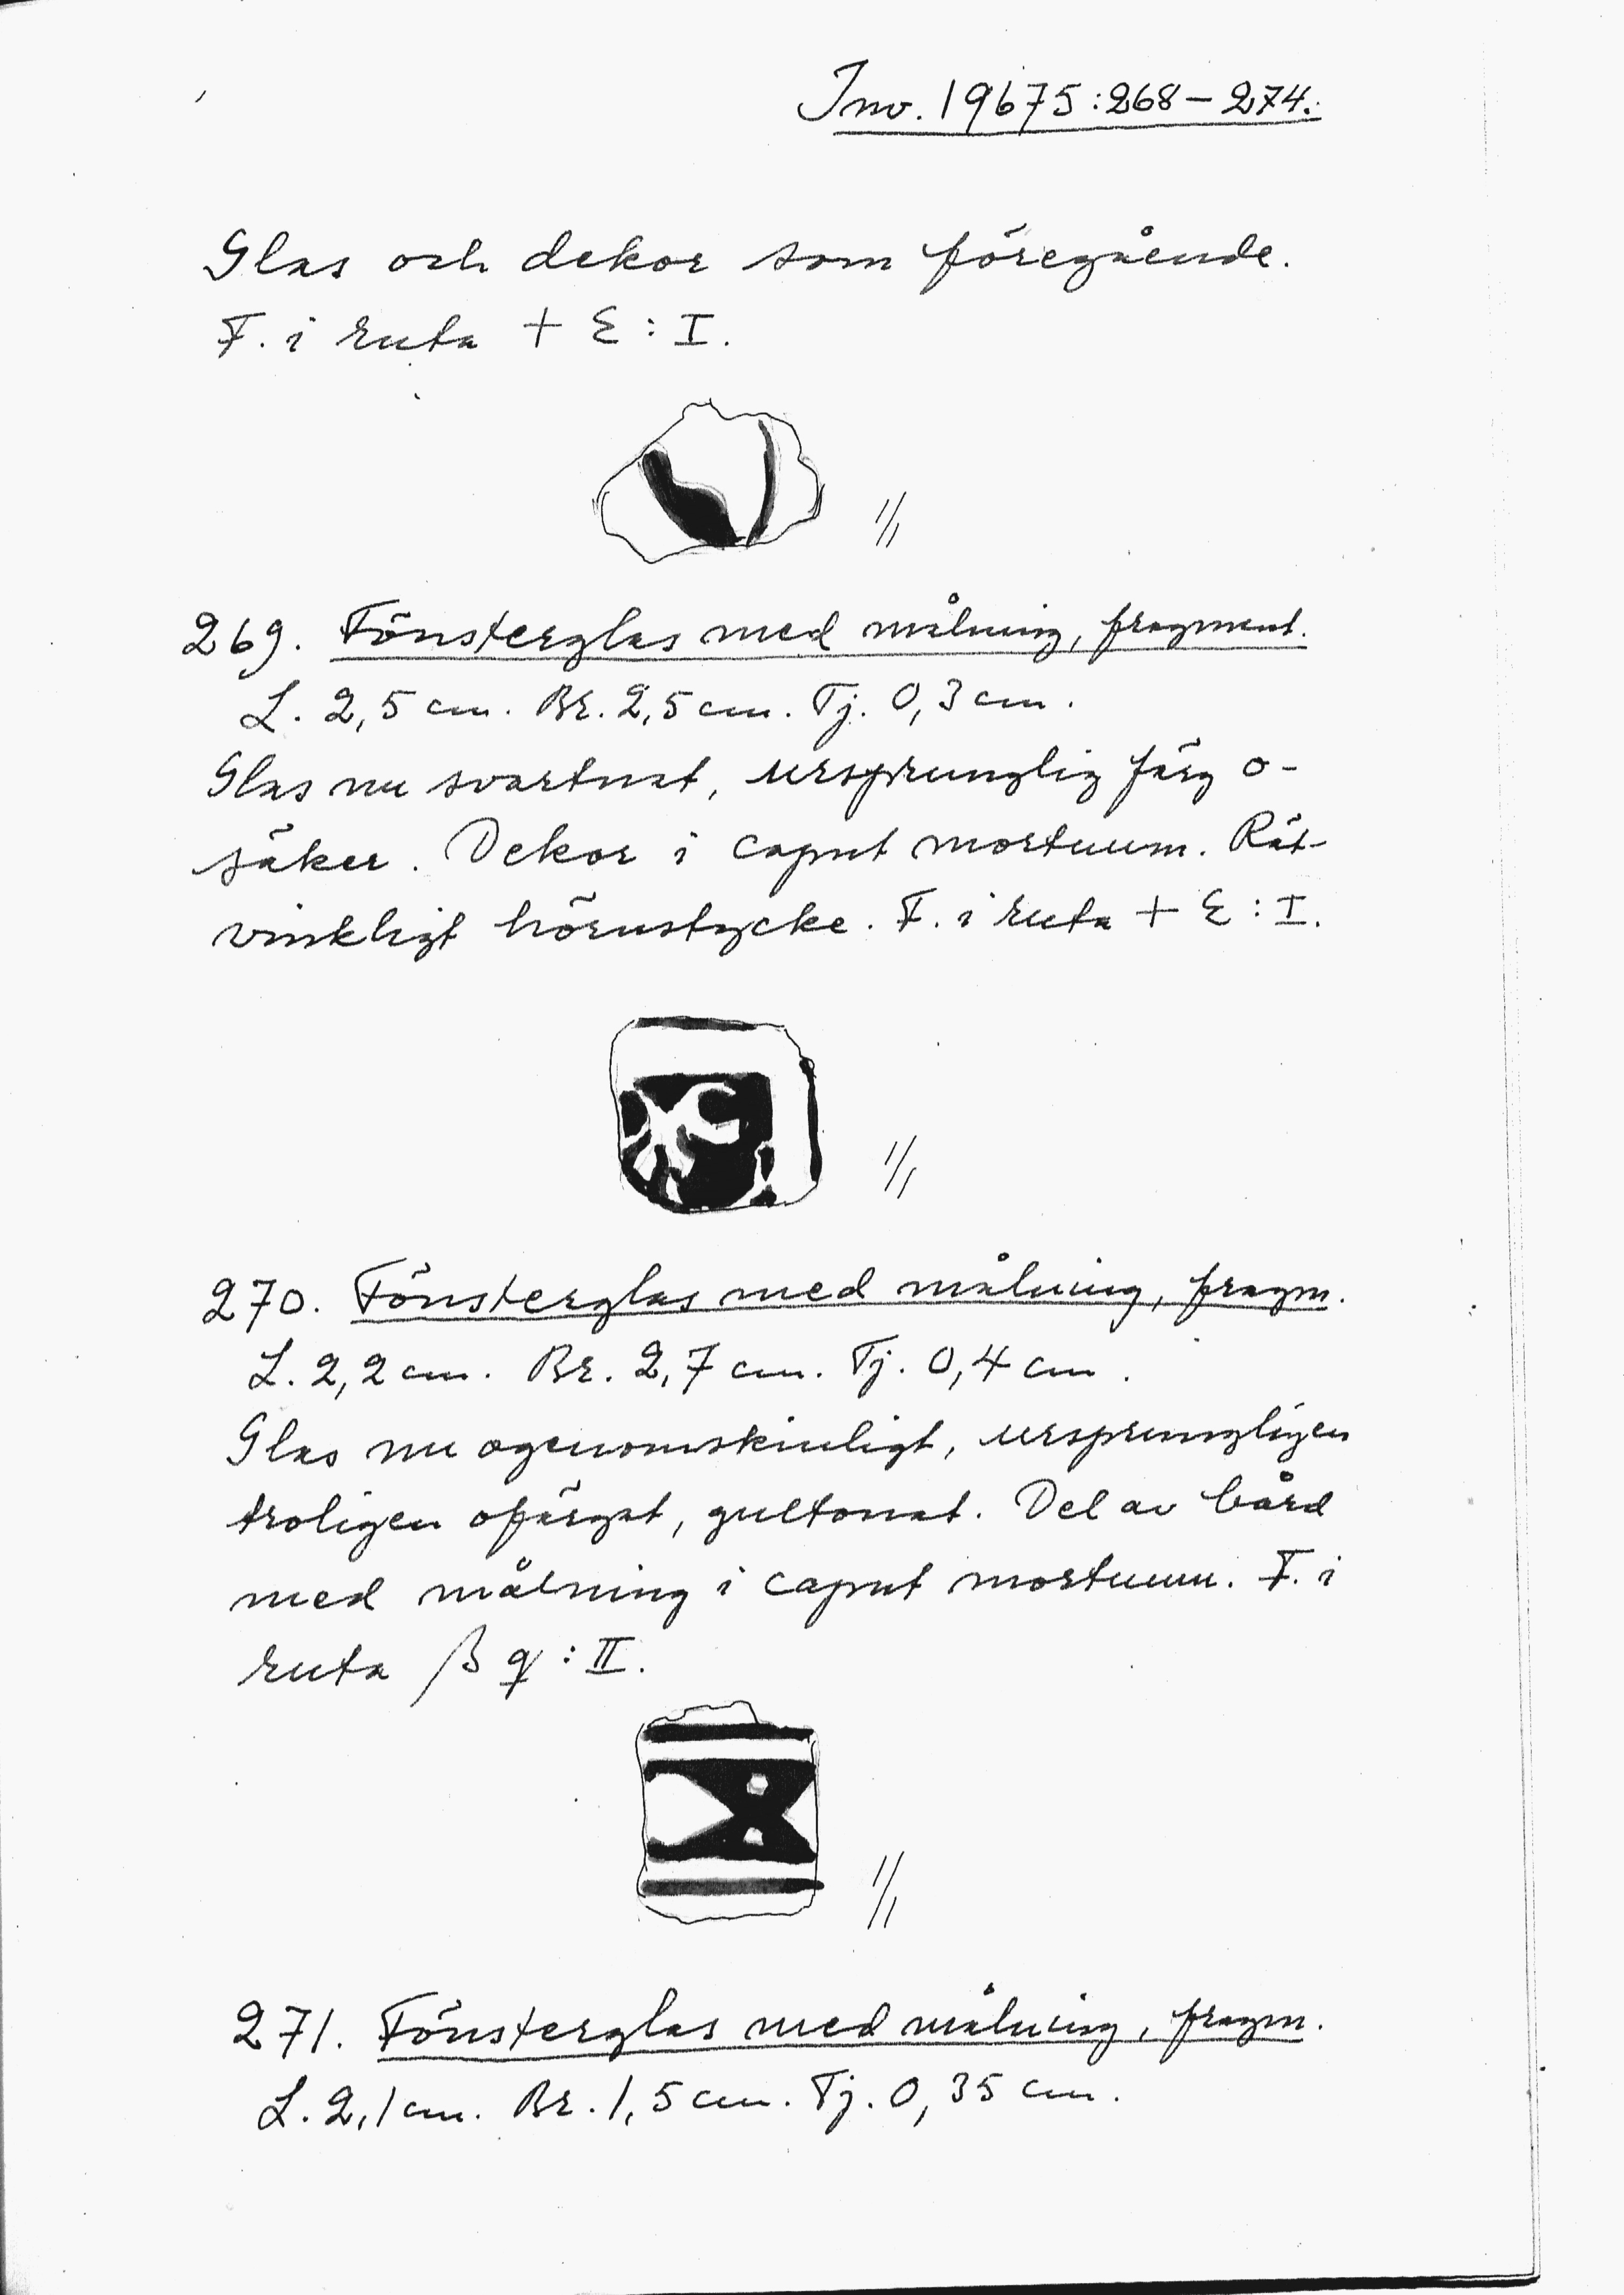 Inv. 19675:268–274.
Glas och dekor som föregående.
F. i ruta + ε : I.
1/1
269. Fönsterglas med målning, fragment.
L. 2,5 cm. Br. 2,5 cm. Tj. 0,3 cm.
Glas nu svartnat, ursprunglig färg o-
säker. Dekor i caput mortuum. Rät-
vinkligt hörnstycke. F. i ruta + ε : I.
1/1
270. Fönsterglas med målning, fragm.
L. 2,2 cm. Br. 2,7 cm. Tj. 0,4 cm.
Glas nu ogenomskinligt, ursprungligen
troligen ofärgat, gultonat. Del av bård
med målning i caput mortuum. F. i
ruta β q : II.
1/1
271. Fönsterglas med målning, fragm.
L. 2,1 cm. Br. 1,5 cm. Tj. 0,35 cm.